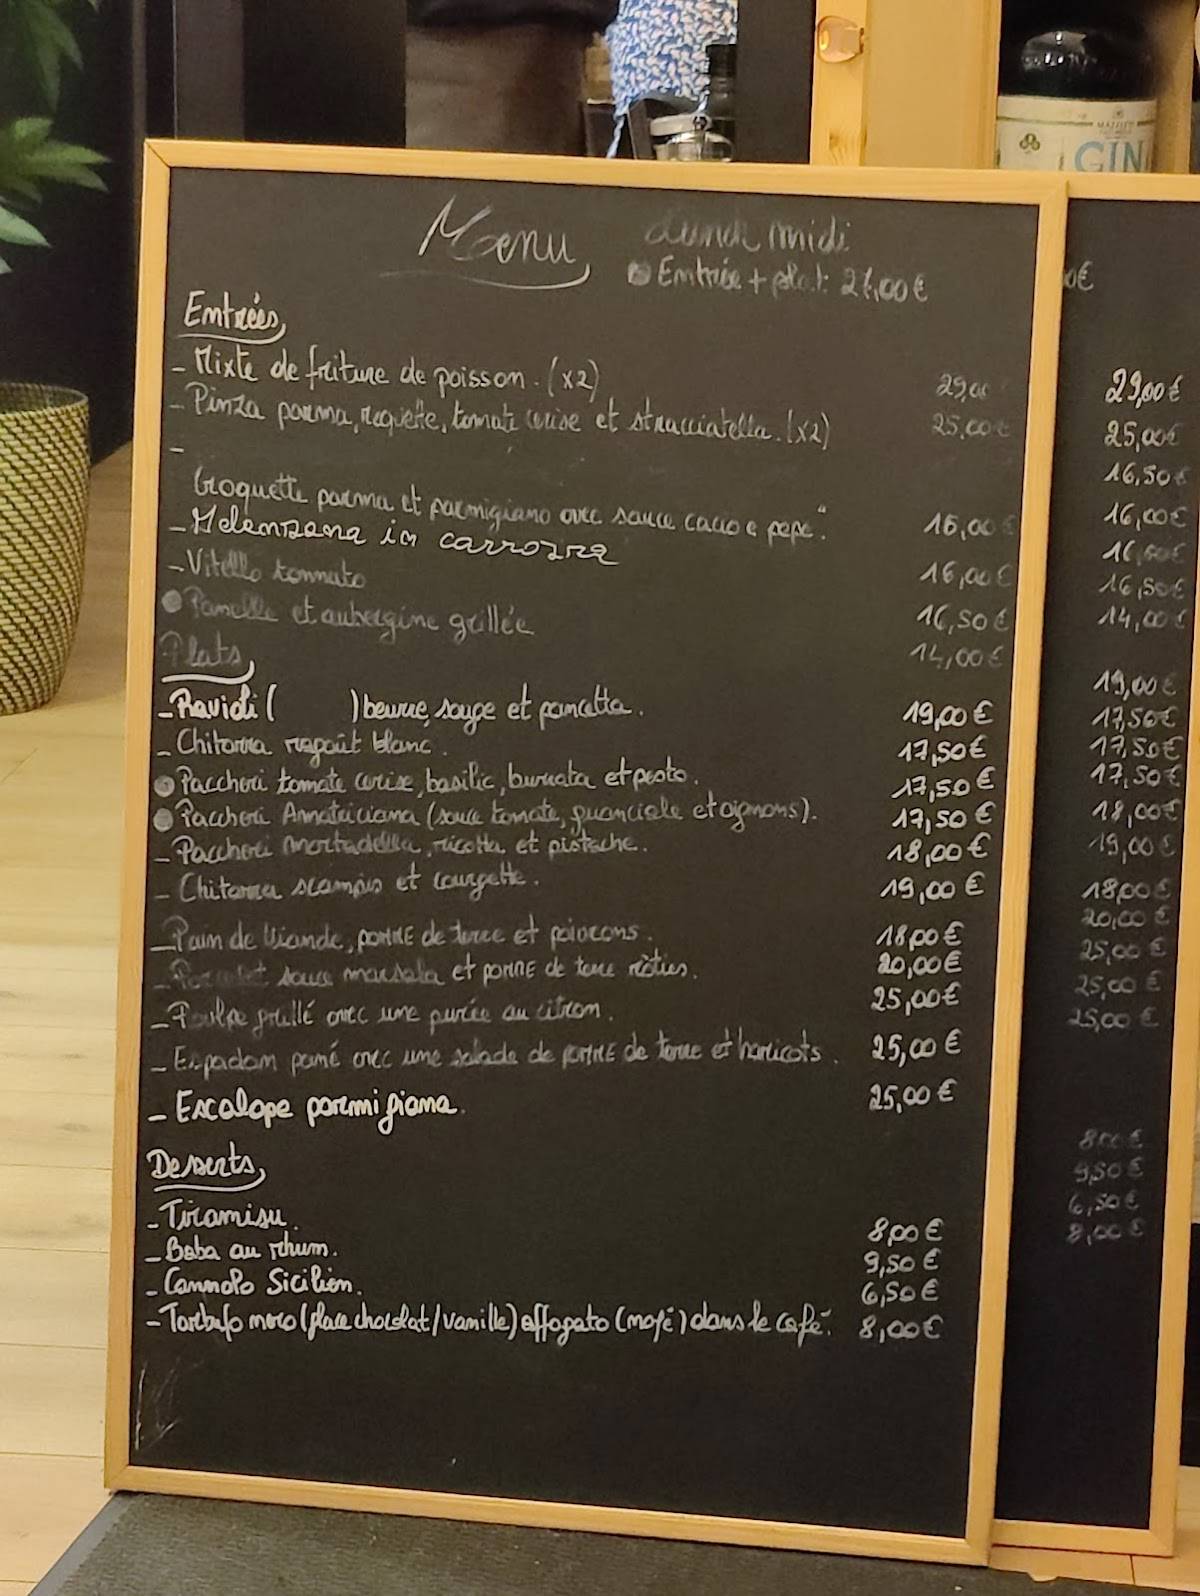 Menu
Lunch midi
Entrée + plat: 21,00€
Entrées
- Mixte de friture de poisson. (x2) 29,00
- Pinza parma, roquette, tomate cerise et stracciatella. (x2) 25,00€
-
Croquette parma et parmigiano avec sauce cacio e pepe". 16,00€
- Melanzana in carrozza 16,00€
- Vitello tonnato 16,50€
Panelle et aubergine grillée 14,00€
Plats
- Ravioli ( ) beurre, sauge et pancetta. 19,00€
- Chitarra ragoût blanc. 17,50€
Paccheri tomate cerise, basilic, burrata et pesto. 17,50€
Paccheri Amatriciana (sauce tomate, guanciale et oignons). 17,50€
- Paccheri mortadella, ricotta et pistache. 18,00€
- Chitarra scampis et courgette. 19,00€
- Pain de viande, pomme de terre et poivrons. 18,00€
- sauce marsala et pomme de terre rôties. 20,00€
- Poulpe grillé avec une purée au citron. 25,00€
- Espadon pané avec une salade de pomme de terre et haricots. 25,00€
- Escalope parmigiana. 25,00€
Desserts
- Tiramisu. 8,00€
- Baba au rhum. 9,50€
- Cannolo Sicilien. 6,50€
- Tartufo nero (glace chocolat/vanille) affogato (noyé) dans le café". 8,00€
0€
29,00€
25,00€
16,50€
16,00€
16,50€
14,00€
19,00€
17,50€
17,50€
17,50€
18,00€
19,00€
18,00€
20,00€
25,00€
25,00€
25,00€
8,00€
9,50€
6,50€
8,00€
GIN